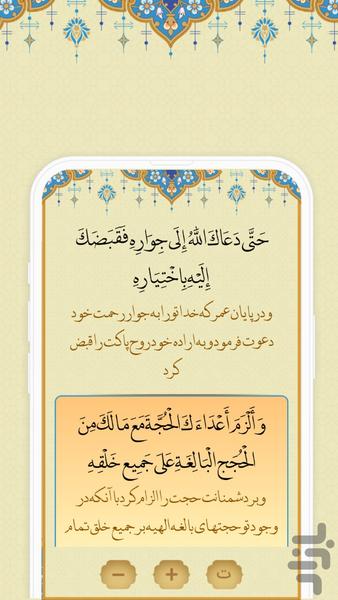 حَتَّى دَعَاكَ اللَّهُ إِلَى جِوَارِهِ فَقَبَضَكَ
إِلَيْهِ بِاخْتِيَارِهِ
و در پایان عمر که خدا تو را به جوار رحمت خود
دعوت فرمود و به اراده خود روح پاکت را قبض
کرد
وَ أَلْزَمَ أَعْدَاءَكَ الْحُجَّةَ مَعَ مَا لَكَ مِنَ
الْحُجَجِ الْبَالِغَةِ عَلَى جَمِيعِ خَلْقِهِ
و بر دشمنانت حجت را الزام کرد با آنکه در
وجود تو حجتهای بالغه الهیه بر جمیع خلق تمام
− + ت
بازار